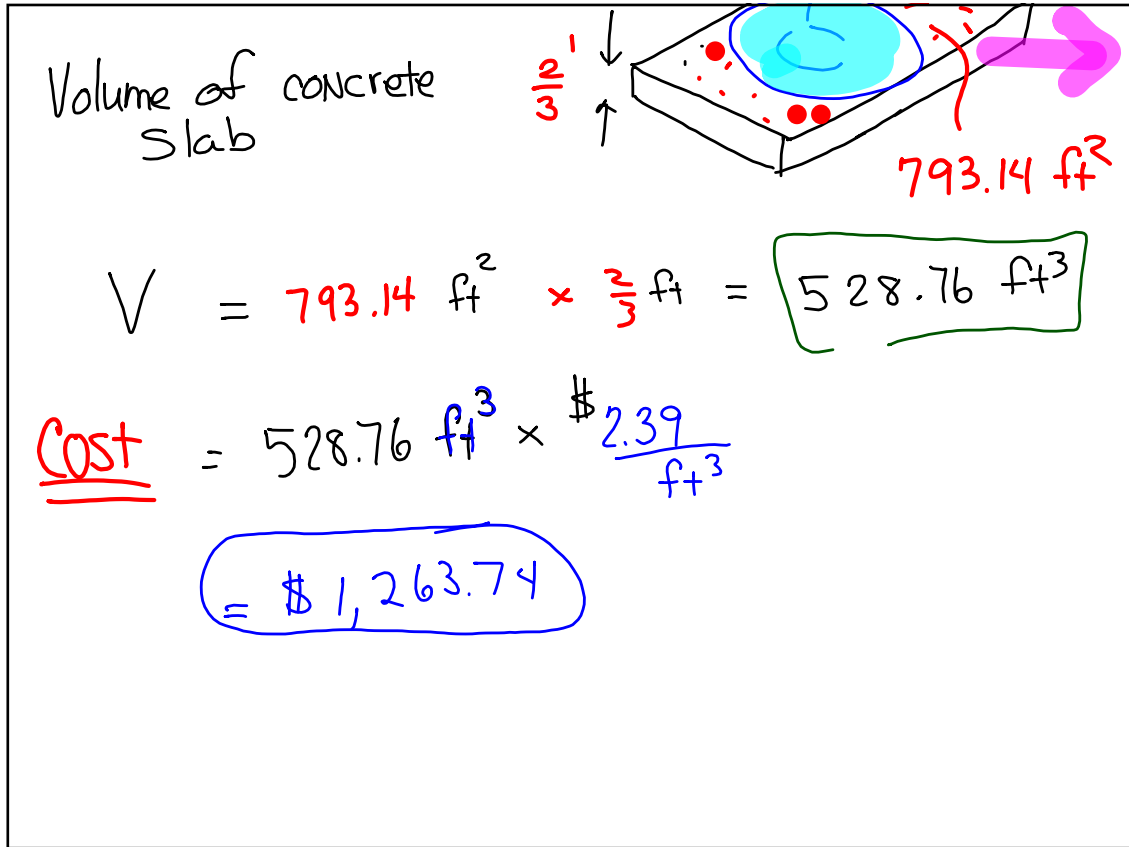 Volume of concrete
slab
2/3 '
793.14 ft²
V = 793.14 ft² × 2/3 ft = 528.76 ft³
Cost = 528.76 ft³ × $2.39/ft³
= $1,263.74